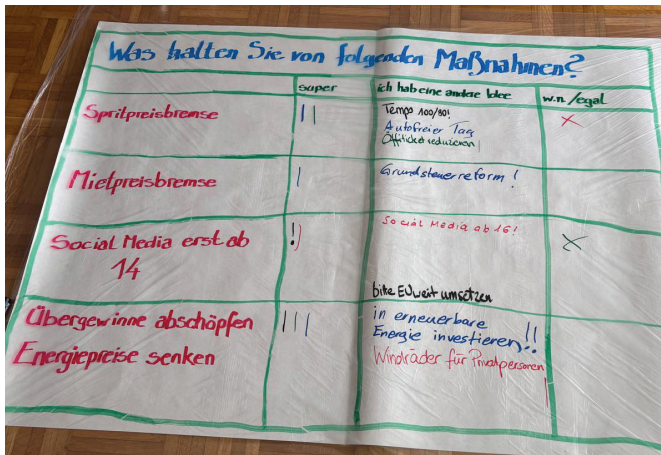 Was halten Sie von folgenden Maßnahmen?
super
ich hab eine andere Idee
w.n./egal
Spritpreisbremse
Tempo 100/80!
Autofreier Tag
Öffiticket reduzieren
Mietpreisbremse
Grundsteuerreform!
Social Media erst ab
14
Social Media ab 16!
bitte EUweit umsetzen
Übergewinne abschöpfen
Energiepreise senken
in erneuerbare
Energie investieren!!
Windräder für Privatpersonen